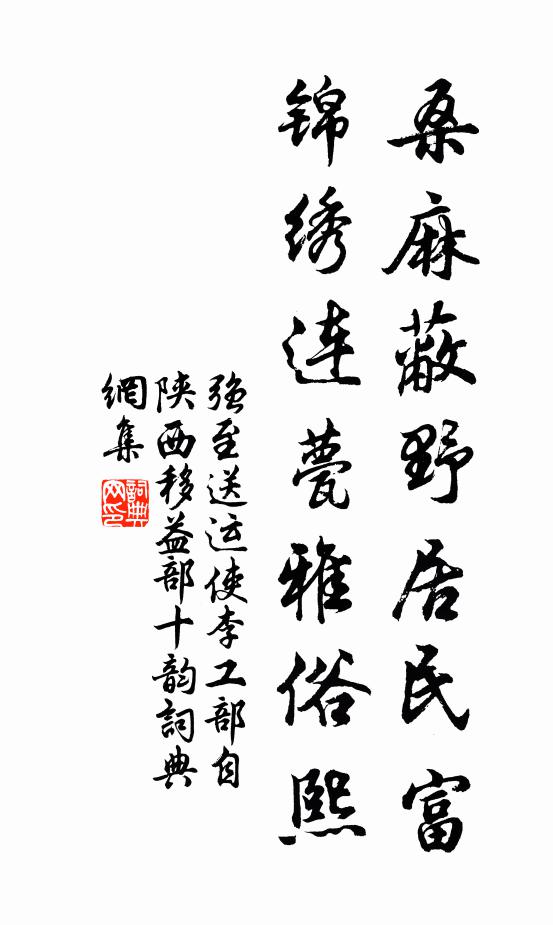 桑麻蔽野居民富
锦绣连甍雅俗熙
强至送运使李工部自
陕西移益部十韵词典
網集
詞典
网印